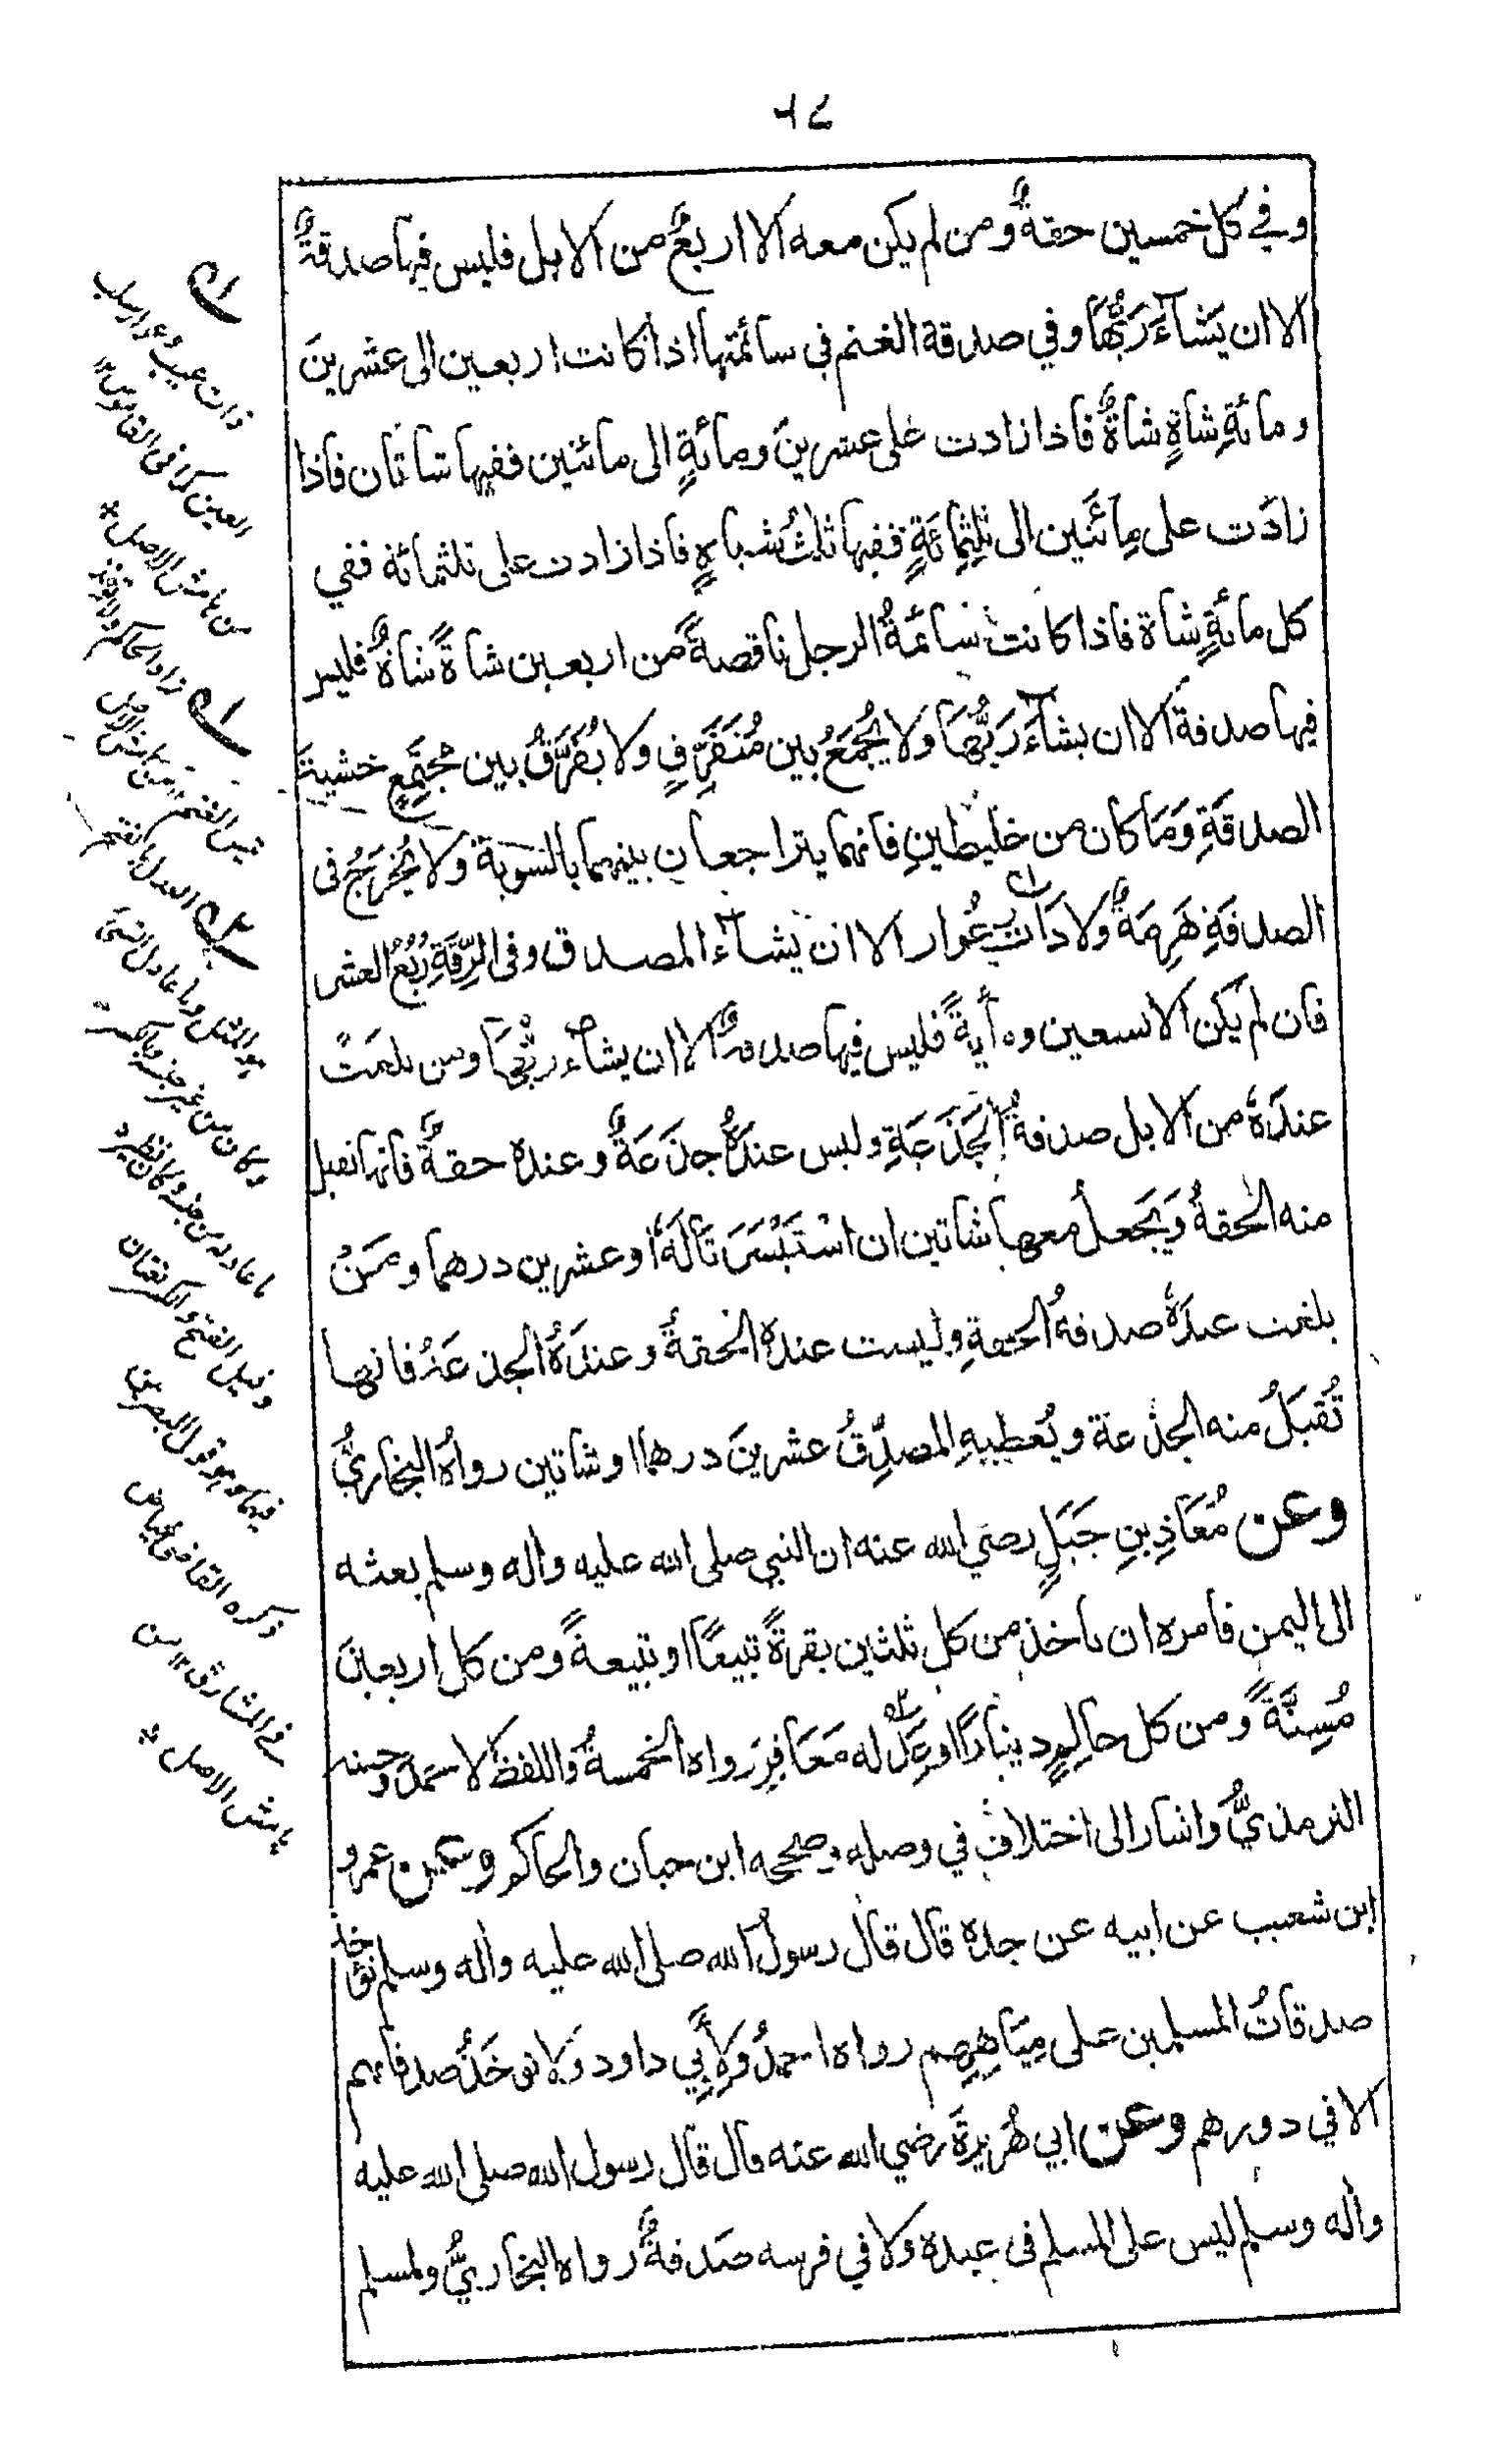 ٦٤
وفي كل خمسين حقةٌ ومن لم يكن معه الا اربعٌ من الابل فليس فيها صدقةٌ
الا ان يَشَآءَ رَبُّهَا وفي صدقة الغنم فى سائمتها اذا كانت اربعين الى عشرينَ
ومائةِ شاةٍ شاةٌ فاذا زادت على عشرينَ ومائةٍ الى مائتين ففيها شاتان فاذا
زادَت على مِائتَين الى ثلثِمِائَةٍ ففيها ثلثُ شياهٍ فاذا زادت على ثلثمائة ففي
كل مائةٍ شاة فاذا كانت سائمةُ الرجل ناقصةً من اربعين شاةً شاةٌ فليس
فيها صدقة الا ان يشآءَ رَبُّهَا ولا يُجْمَعُ بين مُتَفَرِّقٍ ولا يُفَرَّقُ بين مُجْتَمِعٍ خشيةَ
الصدقَةِ وَمَا كان من خليطينِ فانهما يتراجعان بينهما بالسَوية ولا يُخرَجُ فى
الصدقَةِ هَرِمَةٌ ولا ذَات عُوار الا ان يشآء المصدق وفى الرِّقَةِ رُبُعُ العشر
فان لم يكن الا تسعين ومأيةً فليس فيها صدقةٌ الا ان يشآء ربُّهَا ومن بلغت
عندَهُ من الابل صدقةُ الجَذَعَةِ وليس عندَهُ جذَعَةٌ وعنده حقةٌ فانها تقبل
منه الحقةُ وَيَجعلُ معها شاتين ان اسْتَيْسَرَتَا لَهُ او عشرين درهما ومَنْ
بلغت عندَهُ صدقةُ الحقةِ وليست عنده الحقةُ وعندَهُ الجذعَةُ فانها
تُقبَلُ منه الجذعة ويُعطِيهِ المصدِّقُ عشرينَ درهما او شاتين رواهُ البخاريُّ
وعن مُعَاذِ بنِ جَبَلٍ رضي الله عنه ان النبي صلى الله عليه واله وسلم بعثه
الى اليمن فامره ان ياخذ من كل ثلثين بقرةً تبيعًا او تبيعةً ومن كل اربعين
مُسِنَّةً ومن كل حالِمٍ دينارًا او عدل له مَعَافِرِ رواه الخمسةُ واللفظ لاحمدَ وحسنه
الترمذيُّ واشار الى اختلافٍ في وصله وصححه ابن حبان والحاكم وعن عمرو
ابن شعيب عن ابيه عن جده قال قال رسولُ الله صلى الله عليه واله وسلم تؤخذ
صدقاتُ المسلمين على مِيَاهِهِم رواه احمدُ ولِأَبِي داود ولا تؤخَذُ صدقاتهم
الا في دورهم وعن ابي هُريرةَ رضي الله عنه قال قال رسول الله صلى الله عليه
واله وسلم ليس على المسلم فى عبده ولا في فرسه صَدقةٌ رواه البخاريُّ ولمسلم
له
ذات عيب وعوار
العين كذا فى القاموس
من هامش الاصل
زاد الحاكم
تيس الغنم من هامش الاصل
العدل بالفتح
هو المثل وما عادل الشئ
وكان من غير جنسه وبالكسر
ما عادله من جنسه وكان نظيره
وقيل الفتح والكسر لغتان
فيهما وهو قول البصريين
ذكره القاضى عياض
في المشارق من
هامش الاصل